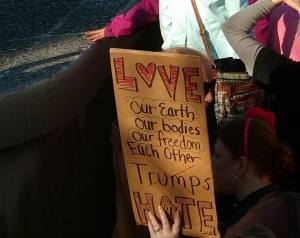 LOVE
Our Earth
Our bodies
Our freedom
Each Other
Trumps
HATE